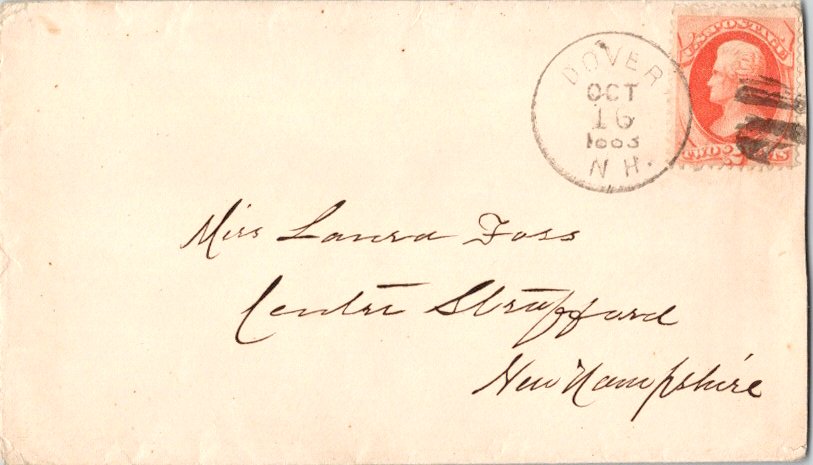 U.S. POSTAGE
TWO 2 CENTS
DOVER
OCT
16
1883
N.H.
Miss Laura Foss
Centre Strafford
New Hampshire